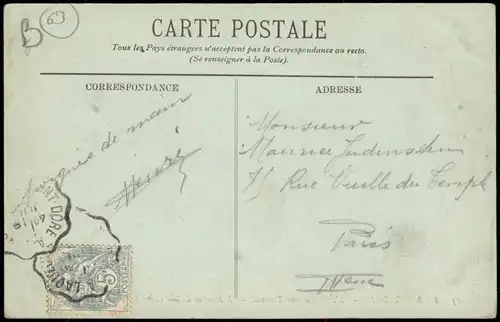 B 63
CARTE POSTALE
Tous les Pays étrangers n'acceptent pas la Correspondance au recto.
(Se renseigner à la Poste).
CORRESPONDANCE
ADRESSE
poignée de main
Henri
Monsieur
Maurice
71 Rue Vieille du Temple
Paris